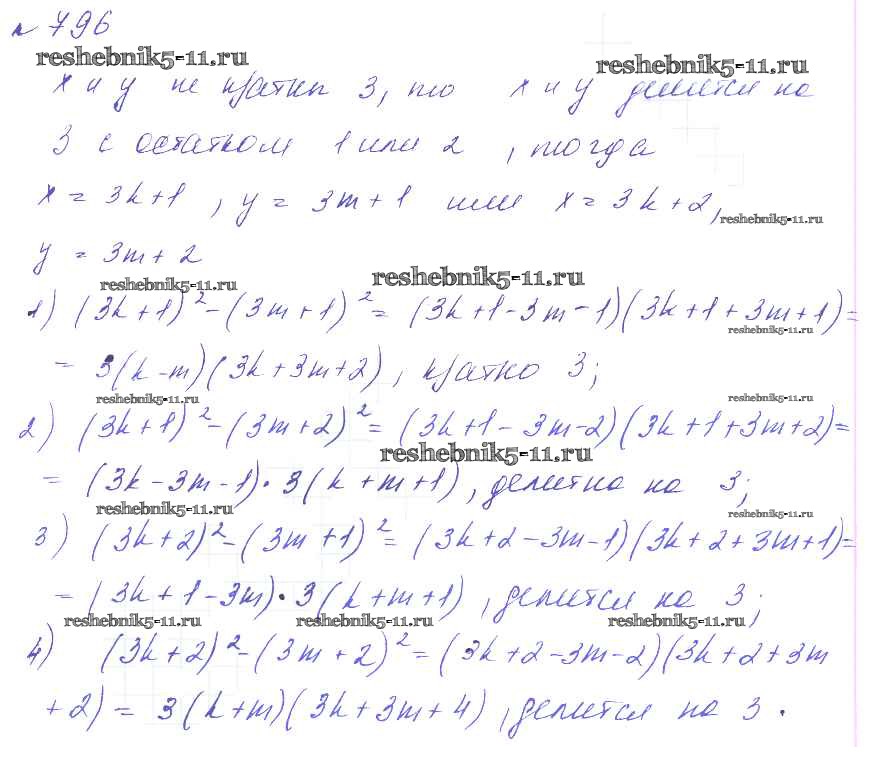 № 796
reshebnik5-11.ru
reshebnik5-11.ru
x и y не кратны 3, то x и y делится на
3 с остатком 1 или 2, тогда
x = 3k+1, y = 3m+1 или x = 3k+2,
reshebnik5-11.ru
y = 3m+2
reshebnik5-11.ru
reshebnik5-11.ru
1) (3k+1)² - (3m+1)² = (3k+1-3m-1)(3k+1+3m+1)=
reshebnik5-11.ru
= 3(k-m)(3k+3m+2), кратно 3;
reshebnik5-11.ru
reshebnik5-11.ru
2) (3k+1)² - (3m+2)² = (3k+1-3m-2)(3k+1+3m+2)=
reshebnik5-11.ru
= (3k-3m-1)·3(k+m+1), делится на 3;
reshebnik5-11.ru
reshebnik5-11.ru
3) (3k+2)² - (3m+1)² = (3k+2-3m-1)(3k+2+3m+1)=
= (3k+1-3m)·3(k+m+1), делится на 3;
reshebnik5-11.ru
reshebnik5-11.ru
reshebnik5-11.ru
4) (3k+2)² - (3m+2)² = (3k+2-3m-2)(3k+2+3m
+2) = 3(k+m)(3k+3m+4), делится на 3.